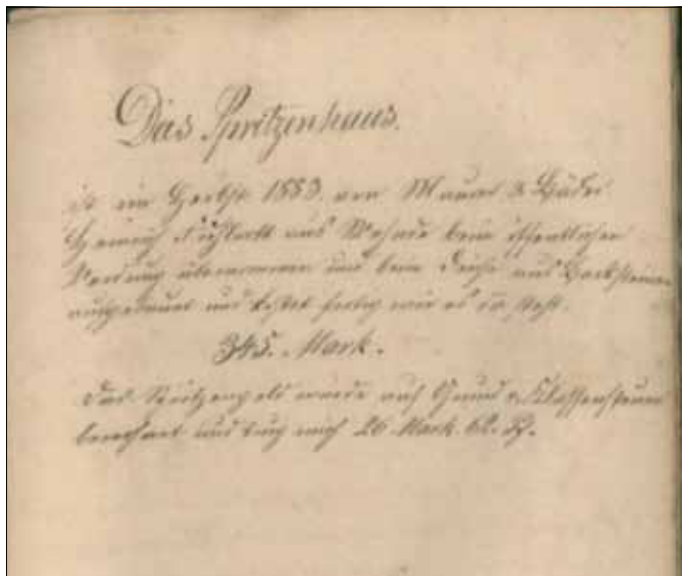 Das Spritzenhaus.
ist im Herbst 1883. von Maurer
Heinrich aus Wehnde beim öffentlichen
übernommen und beim Teiche aus Backsteinen
aufgebaut und kostet fertig wie es da steht.
345. Mark.
Das Spritzengeld wurde auf Grund u. Klassensteuer
berechnet und trug auch 26 Mark. 62. Pf.